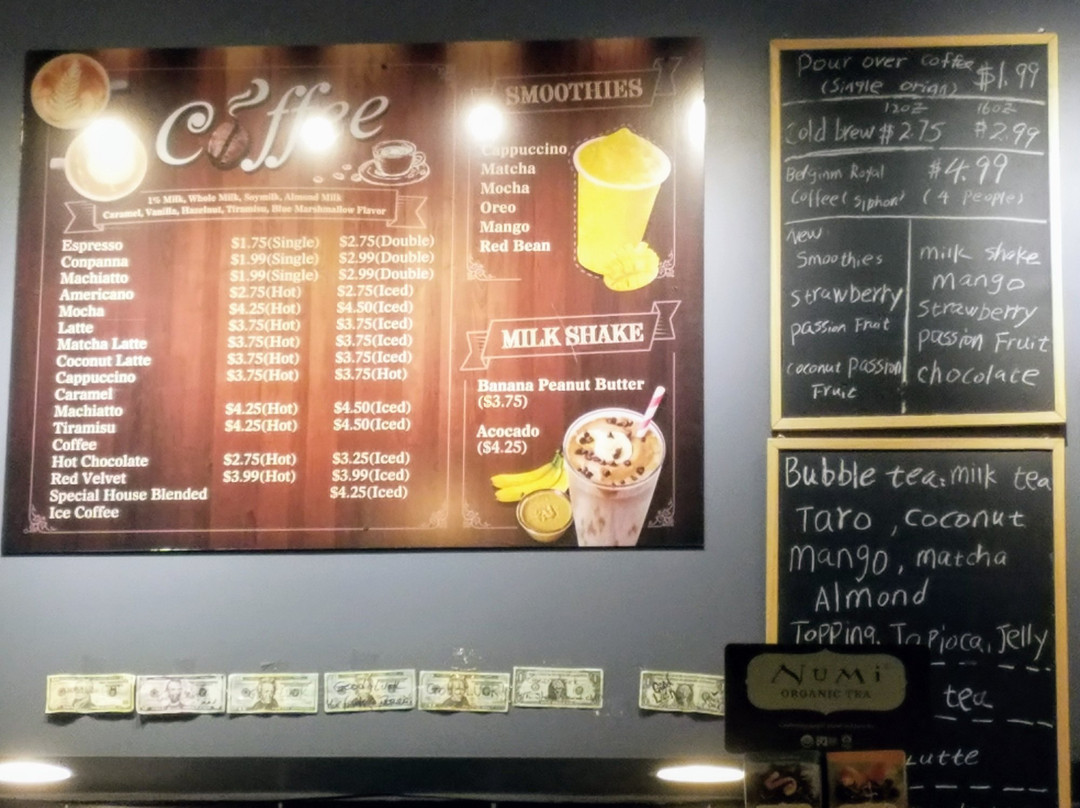 Coffee
1% Milk, Whole Milk, Soymilk, Almond Milk
Caramel, Vanilla, Hazelnut, Tiramisu, Blue Marshmallow Flavor
Espresso $1.75(Single) $2.75(Double)
Conpanna $1.99(Single) $2.99(Double)
Machiatto $1.99(Single) $2.99(Double)
Americano $2.75(Hot) $2.75(Iced)
Mocha $4.25(Hot) $4.50(Iced)
Latte $3.75(Hot) $3.75(Iced)
Matcha Latte $3.75(Hot) $3.75(Iced)
Coconut Latte $3.75(Hot) $3.75(Iced)
Cappuccino $3.75(Hot) $3.75(Hot)
Caramel
Machiatto $4.25(Hot) $4.50(Iced)
Tiramisu $4.25(Hot) $4.50(Iced)
Coffee
Hot Chocolate $2.75(Hot) $3.25(Iced)
Red Velvet $3.99(Hot) $3.99(Iced)
Special House Blended $4.25(Iced)
Ice Coffee
SMOOTHIES
Cappuccino
Matcha
Mocha
Oreo
Mango
Red Bean
MILK SHAKE
Banana Peanut Butter
($3.75)
Acocado
($4.25)
Pour over coffee $1.99
(Single origin)
12OZ 16OZ
Cold brew $2.75 $2.99
Royal $4.99
Coffee( Siphon) (4 People)
New:
Smoothies
Strawberry
passion Fruit
coconut Passion
Fruit
milk shake
mango
Strawberry
passion Fruit
chocolate
Bubble tea: milk tea
Taro, Coconut
Mango, matcha
Almond
Topping. Tapioca, Jelly
tea
NUMi
ORGANIC TEA